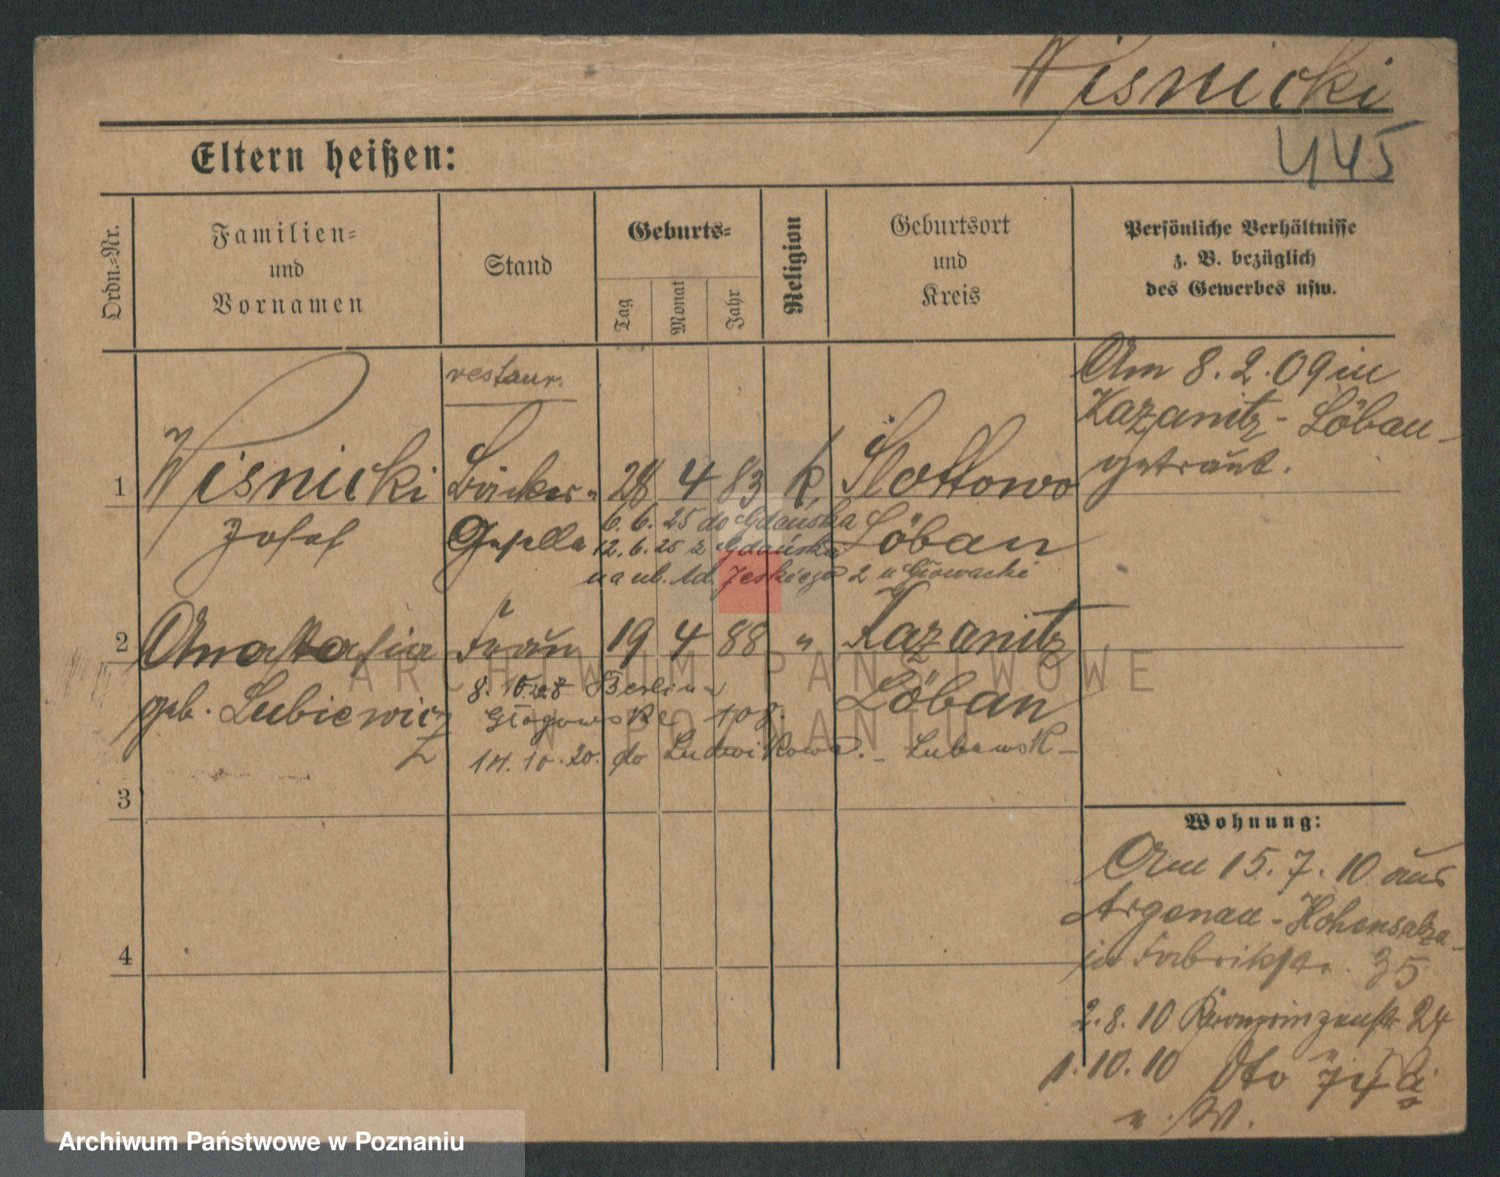 Wisnicki
445
Eltern heißen:
Ordn.-Nr.
Familien-
und
Vornamen
Stand
Geburts-
Tag
Monat
Jahr
Religion
Geburtsort
und
Kreis
Persönliche Verhältnisse
z. B. bezüglich
des Gewerbes usw.
restaur.
1 Wisnicki Bäcker- 28 4 83 k. Slottowo
Josef Geselle Löban
6. 6. 25 do Gdańska
12. 6. 25 z Gdańska
na ul. Jeskiego 2 u Głowacki
2 Anastasia Frau 19 4 88 " Kazanitz
geb. Lubiewicz Löban
8. 10. Berlina
Głogowska 108.
14. 10. 20. do Ludwikowa. - Lubawsk-
3
4
Am 8. 2. 09 in
Kazanitz - Löbau
getraut.
Wohnung:
Am 15. 7. 10 aus
Argenau - Hohensalza
in Fabrikstr. 35
2. 8. 10 Kronprinzenstr 24
1. 10. 10 dto 74
n. W.
ARCHIWUM PAŃSTWOWE
W POZNANIU
Archiwum Państwowe w Poznaniu